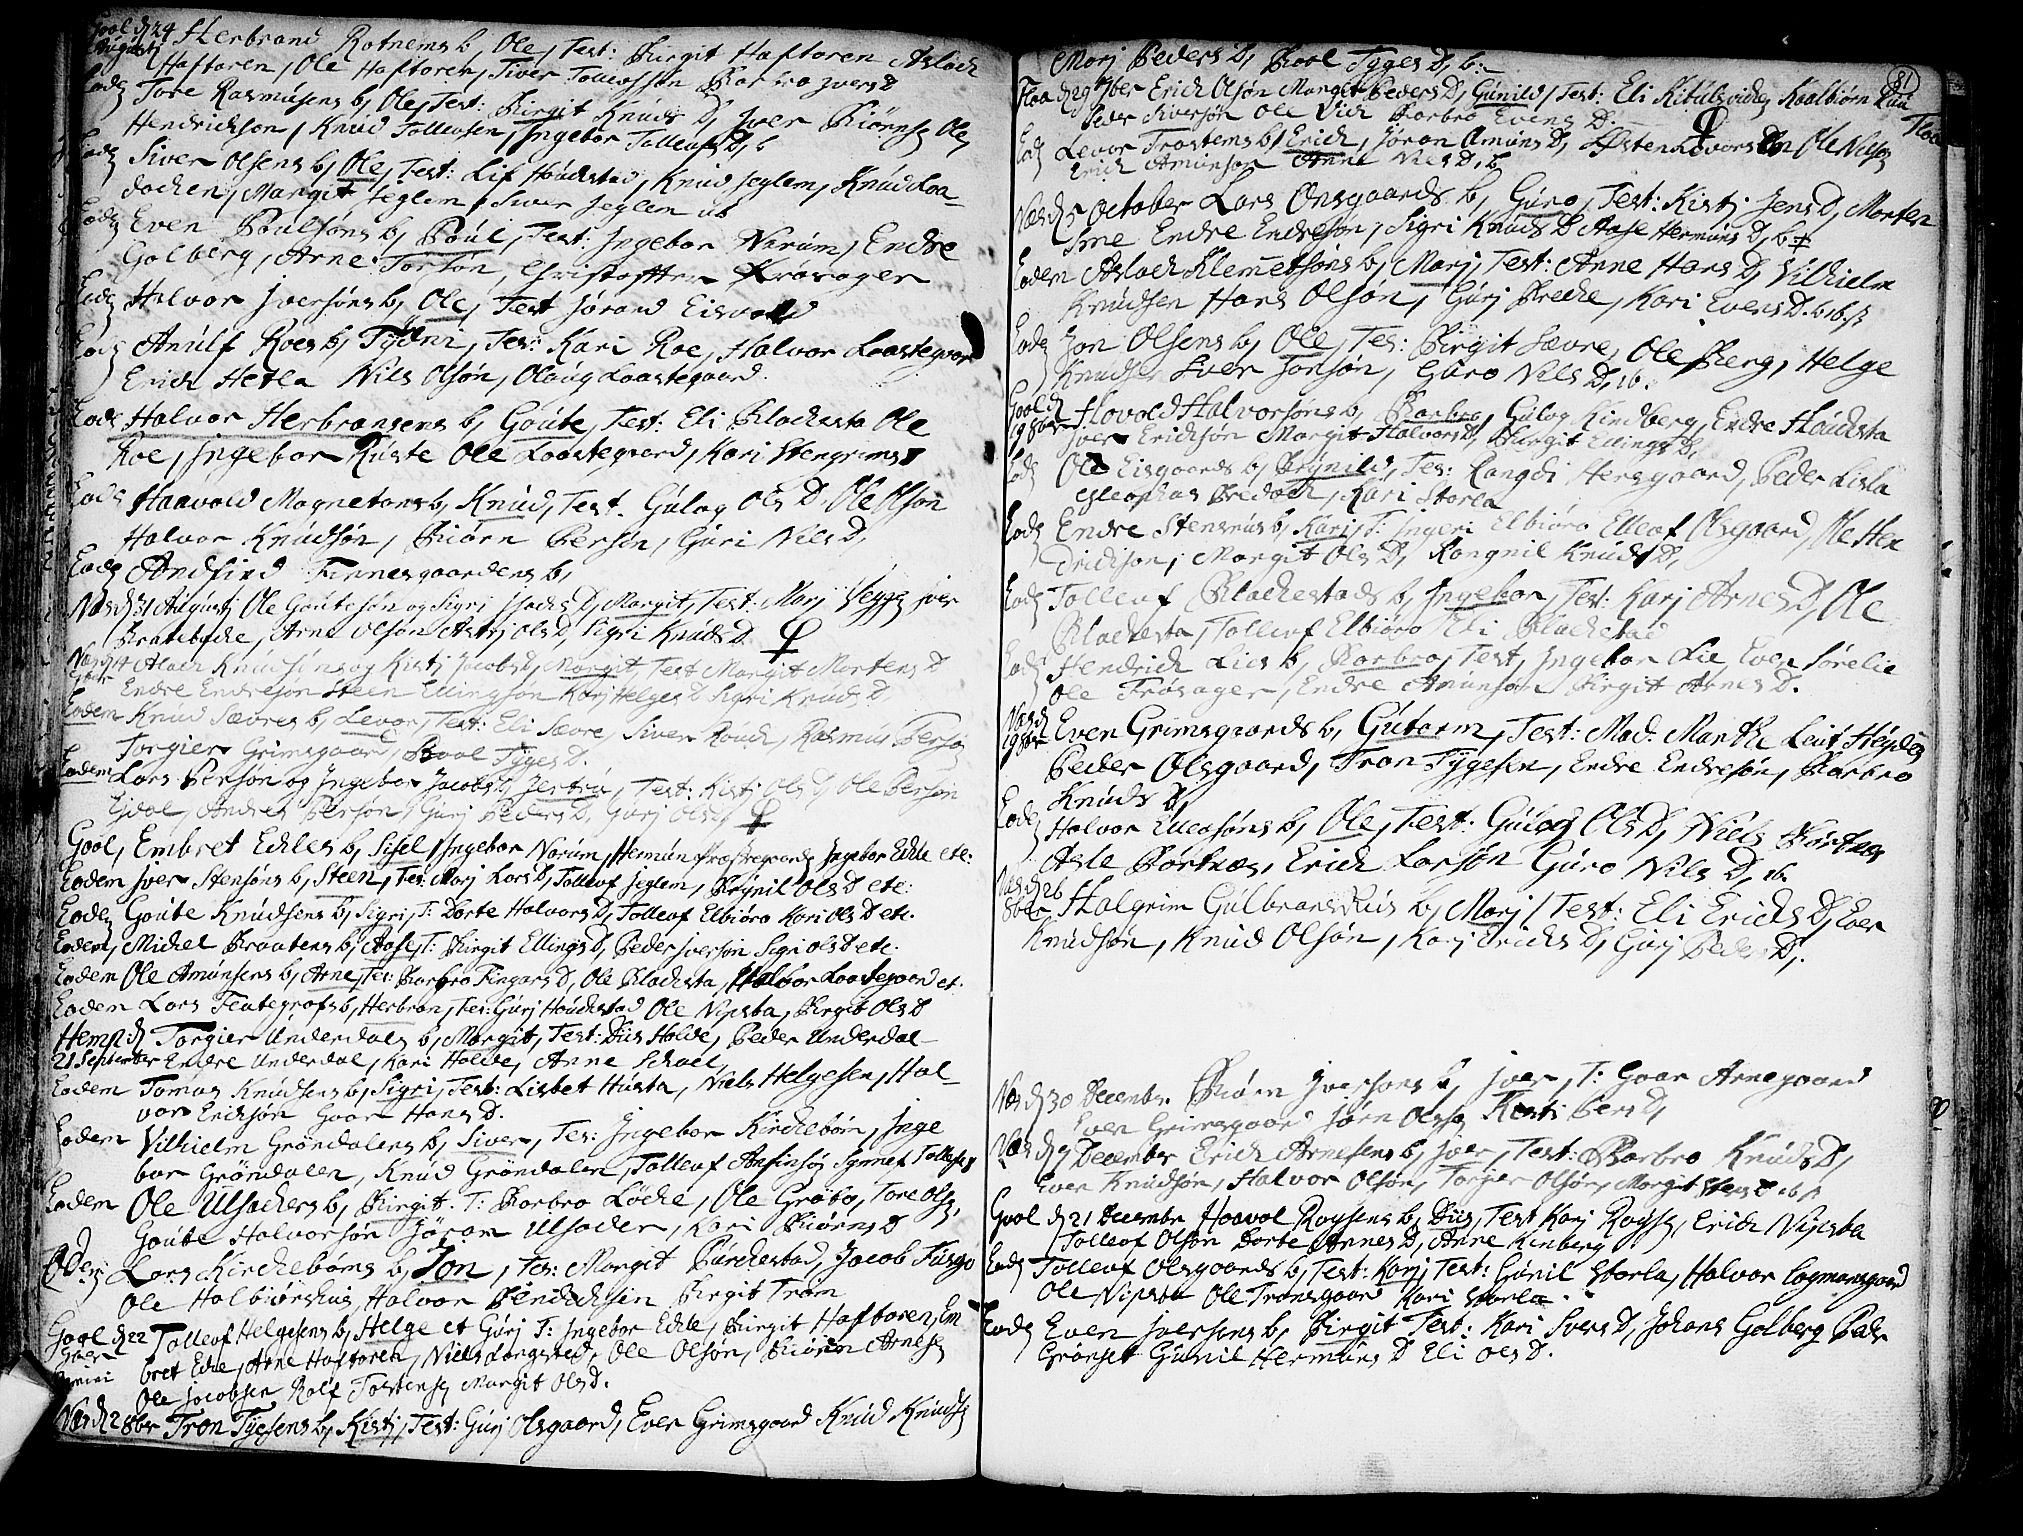 Gool d 24 Herbrand Rotnems b, Ole, Test: Birgit Haftoren Aslack
Augusti Haftoren, Ole Haftoren, Siver Tollefssøn Barbro Ivers D
Eod Tore Rasmusens b, Ole, Test: Birgit Knuds D, Iver Biørns Ole
Hendrickson, Knud Tollevsen, Ingebor Tollefs D, b
Eod Siver Olsens b, Ole, Test: Lif Houckstad, Knud Jeglem, Knud Loa-
docken, Margit Jeglem, Siver Jeglem ib
Eod Even Poulsøns b, Poul, Test: Ingebor Narum, Endre
Golberg, Arne Torsøn, Christoffer Trøsager
Eod Halvor Iversøns b, Ole, Test Jørand Eisvold
Eod Anulf Roes b, Tydni, Tes: Kari Roe, Halvor Laastegaar
Erich Hetla Nils Olsøn, Olaug Laastegaard.
Eod Halvor Herbransens b, Goute, Test: Eli Blackesta Ole
Roe, Ingebor Ruste Ole Laastegaard, Kari Stengrims D
Eod Haavold Magnetons b, Knud, Test. Gulog Ols D. Ole Olson
Halvor Knudsøn, Biørn Persøn, Guri Nils D,
Eod Andfind Finnesgaardens b,
Næs d 31 Augusti Ole Goutesøn og Sigri Isacks D, Margit, Test: Marj Vegge Iver
Bratebacke, Arne Olsøn Astrj Ols D, Sigri Knuds D.
Næs d 4 Alach Knudsøns og Kistj Jacobs D, Margit, Test Margit Mortens D
7ber Endre Endresøn Steen Ellingsøn Karj Helges D Sigri Knuds D,
Eodem Knud Sævres b, Levor, Test: Eli Sævre, Siver Rouck, Rasmus Persøn
Torgier Grimsgaard, Boel Tyges D.
Eodem Lars Persøn og Ingebor Jacobs D, Jertru, Test: Kistj Ols D, Ole Persøn
Ejdal, Andres Persøn, Gurj Peders D, Gurj Ols D,
Gool, Embret Eckles b, Sisel, Ingebor Narum, Hermun Præstegaard, Ingebor Eckle etc:
Eodem Iver Stensøns b, Steen, Tes: Marj Lars D, Tollef Jeglem, Brynil Ols D etc:
Eodem Goute Knudsens b, Sigri, T: Dorte Halvors D, Tollef Elbiøro Kari Ols D etc.
Eodem, Michel Brautens b, Aase, T: Birgit Ellings D, Peder Iversøn Sigri Ols D etc.
Eodem Ole Amunsens b, Arne, Tes: Barbro Fingars D, Ole Blackesta, Halvor Laastegaard et.
Eodem Lars Teutegrafs b, Herbran, Tes: Gurj Houckstad Ole Nipsta, Birgit Ols D
Hemp d Torgier Underdals b, Margit, Test: Dus Holde, Peder Underdal
21 September Endre Underdal, Kari Holde, Anne Schael,
Eodem Tomas Knudsens b, Sigri, Test: Lisbet Husta, Niels Helgesen, Hal-
vor Ericksøn Goar Hans D.
Eodem Vilhielm Grøndalens b, Siver, Tes: Ingebor Kirckebøin, Inge
bor Grøndalen, Knud Grøndalen, Tollef Ansinsøn Synnef Tollefs D
Eodem Ole Ulsackers b, Birgit. T: Barbro Løcke, Ole Grøto, Tore Olsen,
Goute Halvorsøn Jøran Ulsacker, Kari Biørns D
Odem Lars Kirckebøms b, Jon, Tes: Margit Burckestad, Jacob
Ole Halbiørshus Halvor Bendicksen Birgit Trøm
Gool d 22 Tollef Helgesens b, Helge et Gurj T: Ingebor Eckle, Birgit Haftoren, Em
7ber bret Ecke, Arne Haftoren, Niels Langsted, Ole Olsøn, Biørn Arnesen
Ole Jacobsen Rolf Torstensen Margit Ols D.
Næs d 2 8br Tron Tygesens b, Kistj, Test: Gurj Olsgaard, Even Grimsgaard Knud Knuds
81
Marj Peders D, Boel Tyges D, b.
Floa d 29 7ber Erick Olsøn Margit Peders D, Gunild, Test: Eli Kitulsvicken Kaalbiørn Ruu
Peder Siversøn Ole Vick Barbro Evens D. Floa
Eod Levor Trostems b, Erick, Jøran Amuns D, Østen Levorsøn Ole Nilsøn
Erick Amunsøn Anne Niels D, b
Næs d 5 October Lars Onsgaards b, Guro, Test: Kistj Jens D, Morten
Sme Endre Endreson, Sigri Knuds D Aase Hermuns D, b
Eodem Aslack Klemetsøns b, Marj, Test: Anne Hans D, Vilhielm
Knudsen Hans Olsøn, Gurj Brecke, Kari Evens D. ib.
Eod Jon Olsens b, Ole, Tes: Birgit Sævre, Ole Berg, Helge
Knudsen Iver Jonsøn, Guro Nils D, ib.
Gool d Hovold Halvorsøns b, Barbro, Gulog Kindberg, Endre Houcksta
19 8ber Iver Ericksøn Margit Halvors D, Birgit Ellings D,
Eod Ole Eisgaards b, Brynild, Tes: Rangdi Hersgaard, Peder Lisla
Eod Endre Stensrus b, Kari, T: Ingeri Elbiøro Ellef Olsgaard, Ole Hen
drickson, Margit Ols D, Rangnil Knuds D,
Eod Tollef Blackestads b, Ingebor, Test: Karj Arnes D, Ole
Blackesta, Tollef Elbiøro Eli Blackestad
Eod Hendrick Lies b, Barbro, Test, Ingebor Lie Even Sørelie
Ole Trøsager, Endre Amunsøn Birgit Arnes D.
Næs d Even Grimsgaards b, Gutorm, Test: Mad. Marthe Leut Heyden
19 8br Peder Olsgaard, Tron Tygesen, Endre Endresøn, Barbro
Knuds D,
Eod Halvor Ellefsøns b, Ole, Test: Gulog Ols D, Niels Børtnes
Asle Børtnes, Erick Larsøn Guro Nils D, ib.
Næs d 26 Halgrim Gulbransrus b, Marj, Test: Eli Ericks D, Even
8ber Knudsøn, Knud Olsøn, Karj Ericks D, Gurj Peders D,
Næs d 30 Decembr. Biørn Iversøns b, Iver, T: Goar Arnegaard
Even Grimsgaard Jørn Olsen Kisti Pers D,
Næs d 9 December Erick Arnesens b, Iver, Test: Barbro Knuds D,
Even Knudsøn, Halvor Olsøn, Torger Olsøn, Margit D ib
Gool d 21 Decembr Haavol Roysens b, Dus, Test Karj Roysen, Erick Nipsta
Tollef Olsøn Dorte Arnes D, Anne Kinberg
Eod Tollef Olsgaards b, Test: Karj, Test: Gunil Storla, Halvor Lagmansgaard
Ole Nipsta Ole Tronsgaard Kari Storla
Eod Even Iversøns b, Birgit Test: Kari Ivers D, Johans Golberg Peder
Grønset Gunil Hermuns D Eli Ols D.